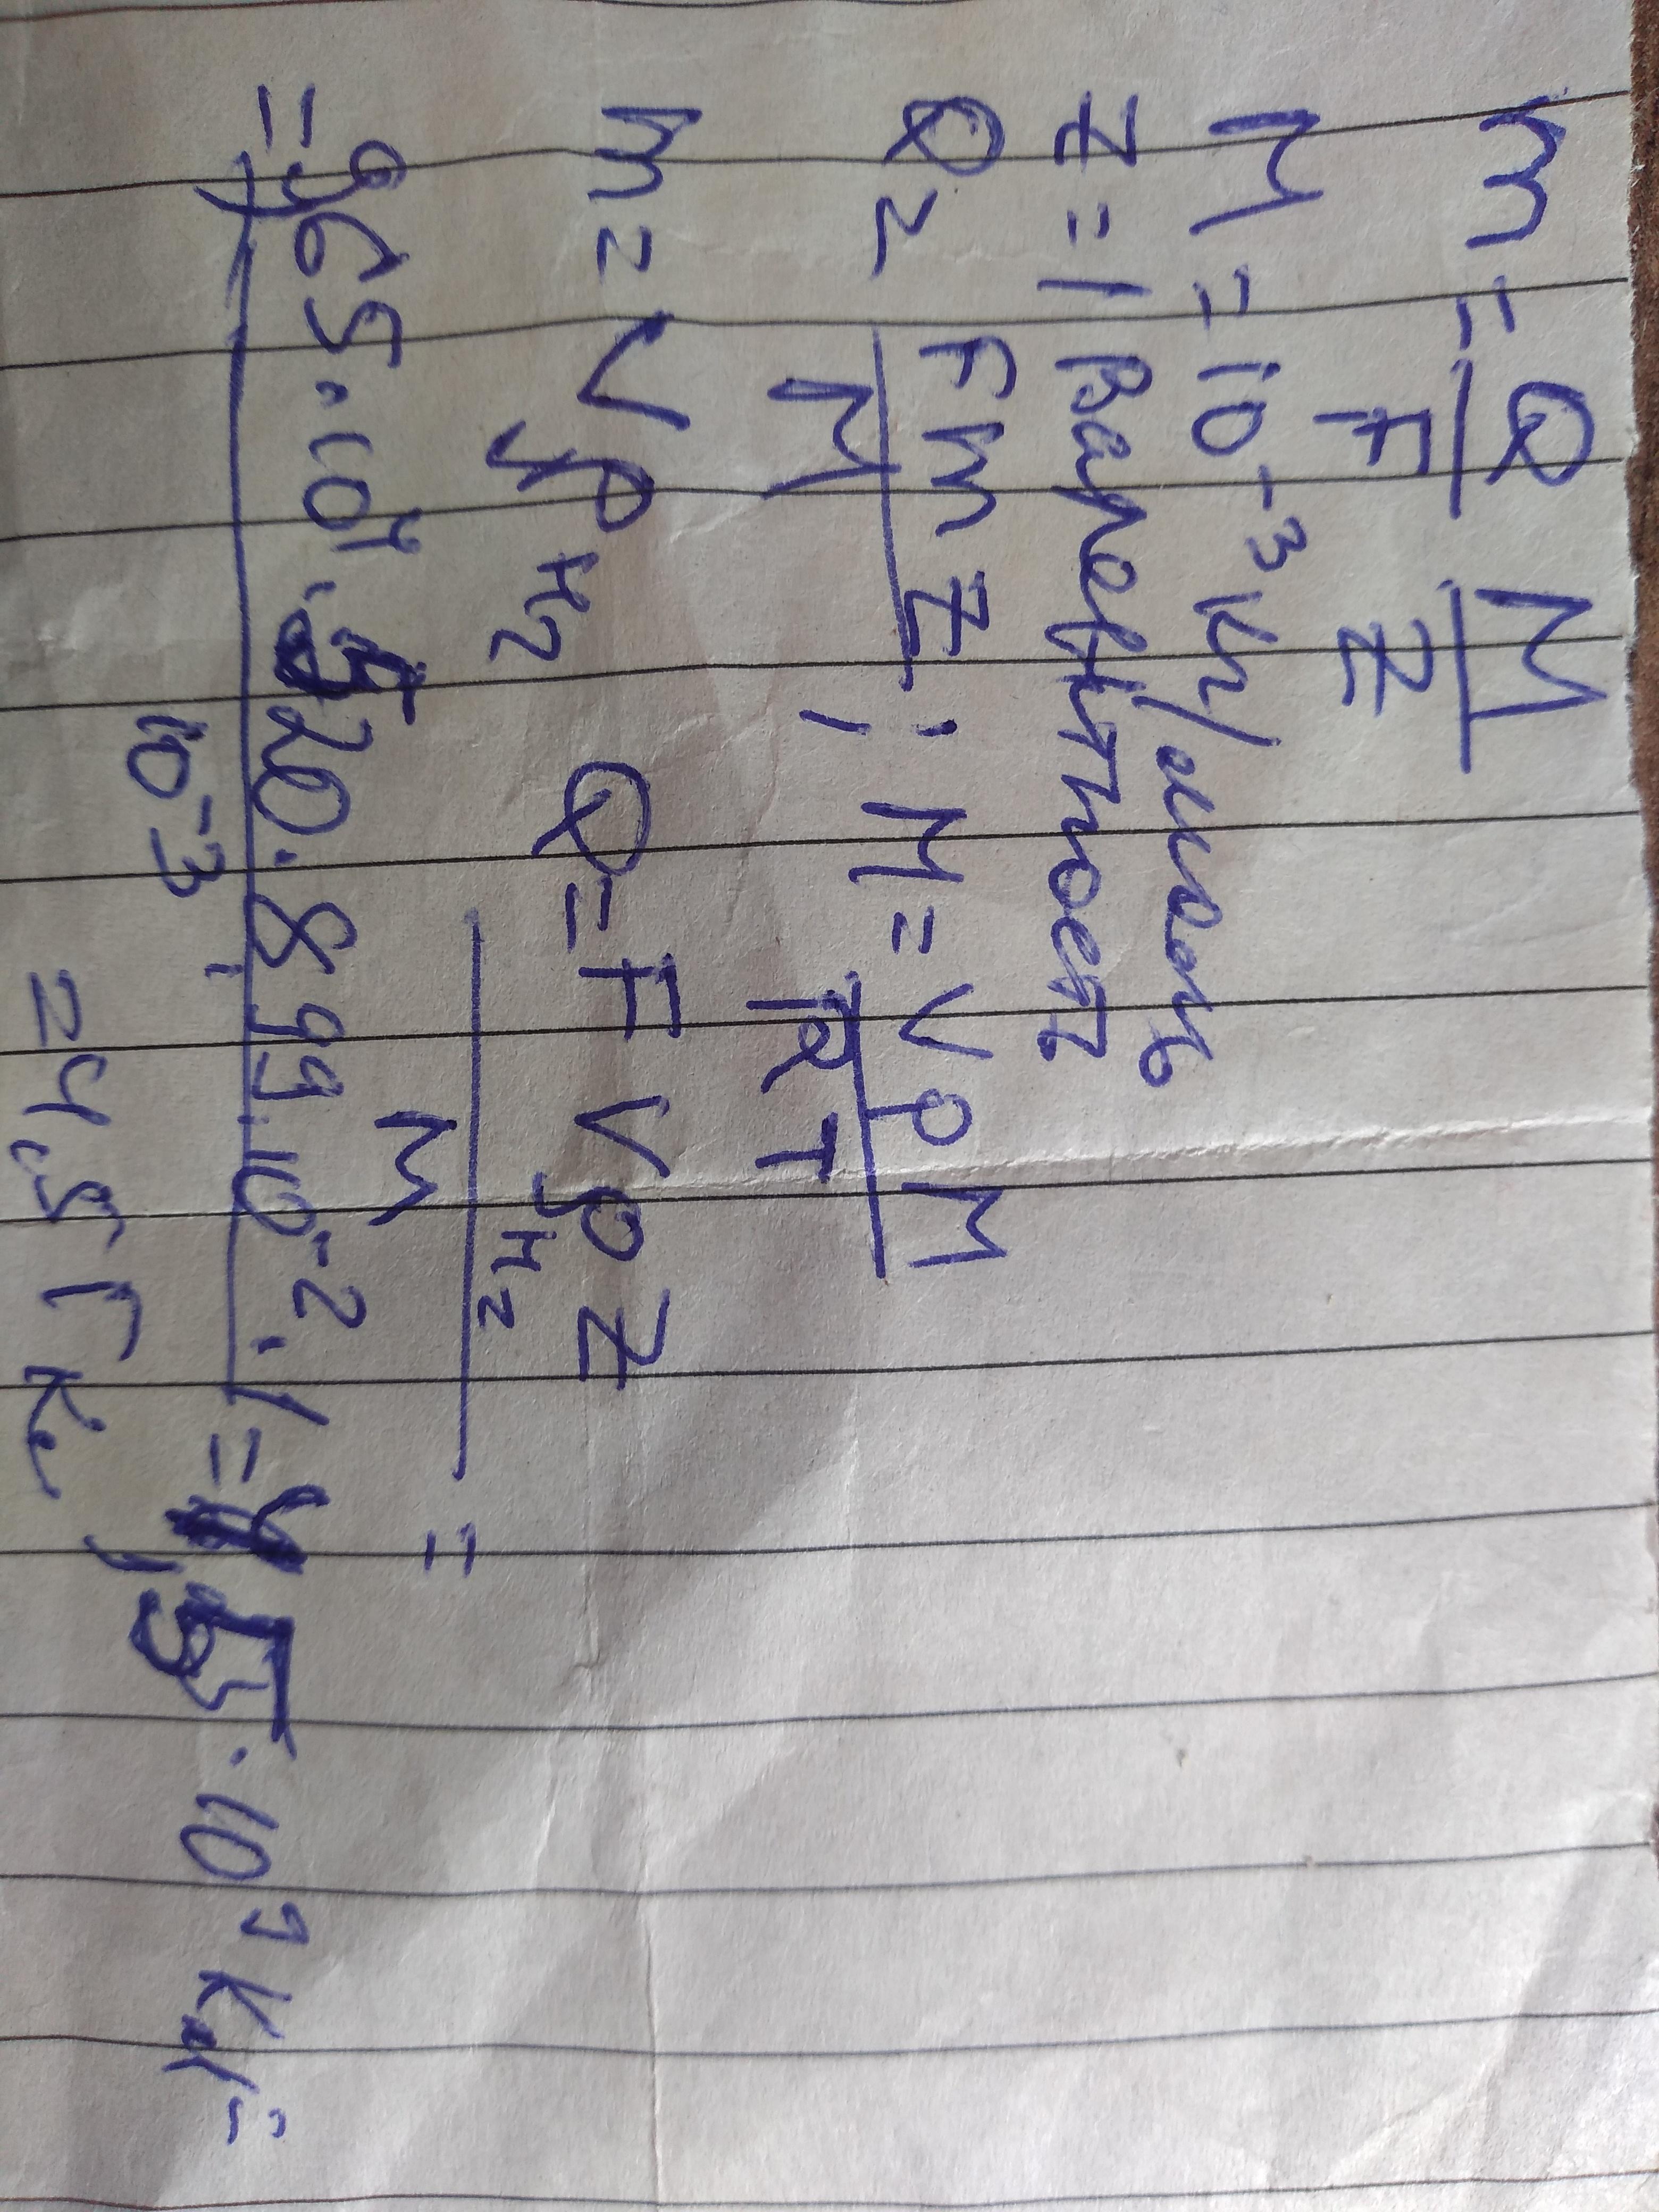 m = Q/F M/Z
M = 10⁻³ кг/моль
Z = 1 валентность
Q = FmZ/M ; M = VPM/RT
m = VρH₂ Q = FVρH₂Z/M =
= 9,65·10⁴·520·8,99·10⁻²·1/10⁻³ = 4,5·10⁹ Кл =
= 4,5 ГКл